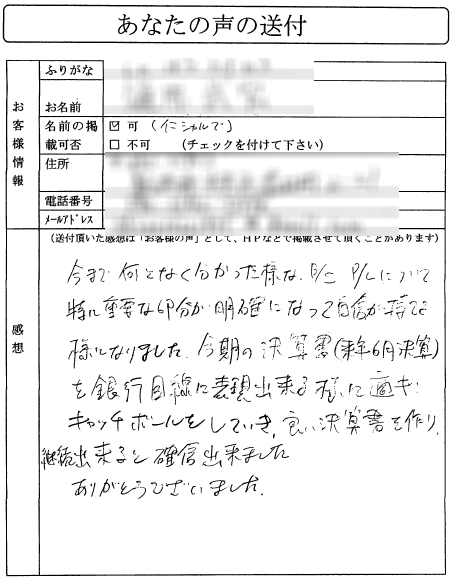 あなたの声の送付
ふりがな
お名前
お客様情報
名前の掲載可否
☑ 可 (イニシャルで)
□ 不可 (チェックを付けて下さい)
住所
電話番号
ﾒｰﾙｱﾄﾞﾚｽ
(送付頂いた感想は「お客様の声」として、HPなどで掲載させて頂くことがあります)
感想
今まで何となく分かった様な、B/S P/Lについて
特に重要な部分が明確になって自信が持てる
様になりました。今期の決算書(来年6月決算)
を銀行目線に表現出来る様に適宜
キャッチボールをしていき、良い決算書を作り、
継続出来ると確信出来ました
ありがとうございました。